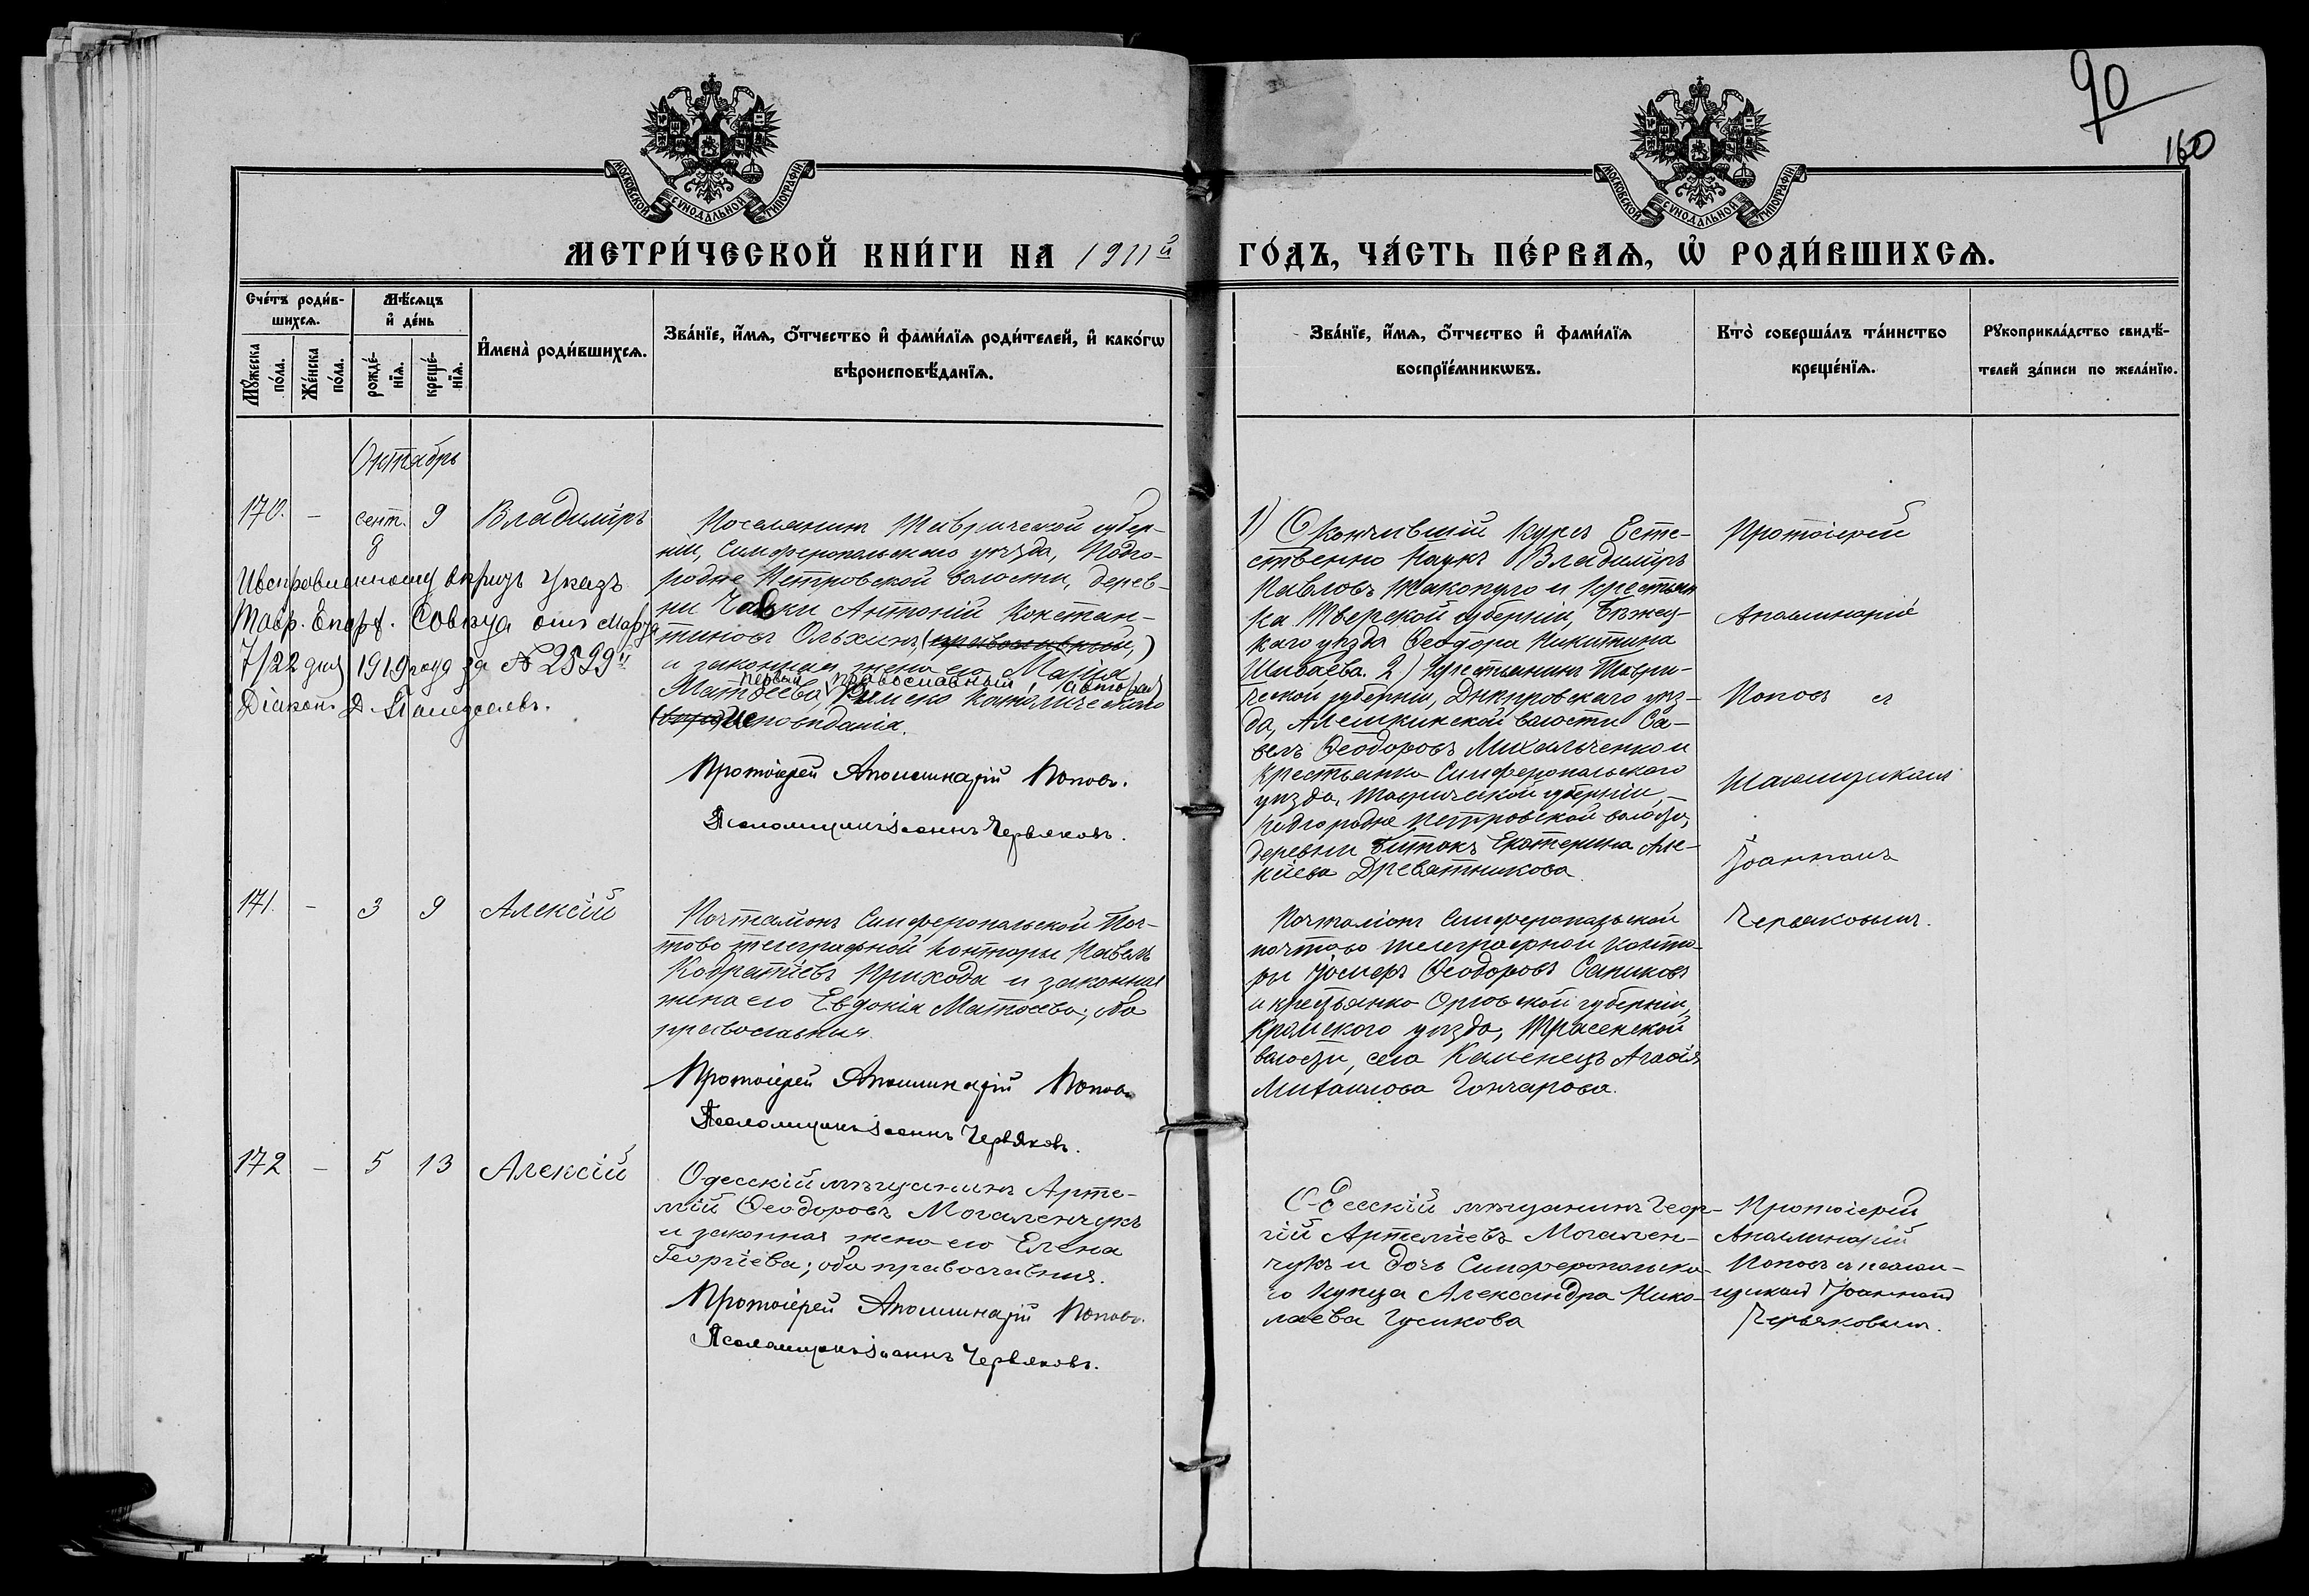 90
160
МОСКОВСКОЙ СУНОДАЛЬНОЙ ТИПОГРАФІИ
МОСКОВСКОЙ СУНОДАЛЬНОЙ ТИПОГРАФІИ
МЕТРИ́ЧЕСКОЙ КНИ́ГИ НА 1911й ГО́ДЪ, ЧА́СТЬ ПЕ́РВАѦ, Ѡ҆ РОДИ́ВШИХСѦ.
Сче́тъ роди́в-
шихсѧ.
Мꙋ́жеска по́ла.
Же́нска по́ла.
Мѣ́сѧцъ
и҆ де́нь
рожде́-
нїѧ.
креще́-
нїѧ.
И҆мена̀ роди́вшихсѧ.
Зва́нїе, и҆́мѧ, ѻ҆́тчество и҆ фами́лїѧ роди́телей, и҆ како́гѡ
вѣроисповѣ́данїѧ.
Зва́нїе, и҆́мѧ, ѻ҆́тчество и҆ фами́лїѧ
воспрїе́мникѡвъ.
Кто̀ соверша́лъ та́инство
креще́нїѧ.
Рꙋкоприкла́дство свидѣ́-
телей за́писи по жела́нїю.
Октябрь
170. - сент. 9 Владиміръ
8
Поселянинъ Таврической губер-
ніи, Симферопольскаго уѣзда, Подго-
родне Петровской волости, дерев-
ни Чавки Антоній Констан-
тиновъ Ольхинъ (православный,)
и законная жена его Марія
первый православный, втор(ая)
Матѳеева, Римско Католическаго
исповѣданія.
Протоіерей Аполлинарій Поповъ.
Псаломщикъ Іоаннъ Червяковъ.
указъ
Тавр. Епарх.
7/22 дня 1919 года за № 2899
Діаконъ
1) Окончившій курсъ Есте-
ственно Наукъ Владиміръ
Павловъ и крестьян
ка Тверской губерніи, Бѣжец-
каго уѣзда Ѳеодора Никитина
Шибаева. 2) Крестьянинъ Таври-
ческой губерніи, Днѣпровскаго уѣз-
да, Алешкинской волости Са-
велъ Ѳеодоровъ Михальченко и
Крестьянка Симферопольскаго
уѣзда, Таврической губерніи,
Подгородне Петровской волости,
деревни Битакъ Екатерина Але-
Древатникова
Протоіерей
Аполлинарій
Поповъ съ
Псаломщикомъ
Іоанномъ
Червяковымъ.
171. - 3 9 Алексій
Почталіонъ Симферопольской Поч-
тово телеграфной конторы Павелъ
Кодратіевъ Приходa и законная
жена его Евдокія Матѳеева; оба
православныя.
Протоіерей Аполлинарій Поповъ
Псаломщикъ Іоаннъ Червяковъ.
Почталіонъ Симферопольской
почтово телеграфной конто-
ры Іосифъ Ѳеодоровъ Сапиковъ
и крестьянка Орловской губерніи,
Кромскаго уѣзда,
волости, села Каменецъ Агаѳія
Михаилова Гончарова.
172 - 5 13 Алексій
Одесскій мѣщанинъ Арте-
мій Ѳеодоровъ Могаленчукъ
и законная жена его Елена
Георгіева; оба православныя.
Протоіерей Аполлинарій Поповъ.
Псаломщикъ Іоаннъ Червяковъ.
Одесскій мѣщанинъ Геор-
гій Артеміевъ Могален-
чукъ и дочь Симферопольска-
го Купца Александра Нико-
лаева Гусикова
Протоіерей
Аполлинарій
Поповъ съ псалом-
щикомъ Іоанномъ
Червяковымъ.